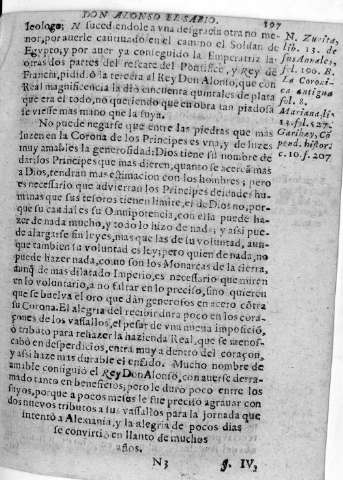 DON ALONSO EL SABIO.
197
leologo; N sucediendole vna desgracia otra no me-
nor, por auerle cautiuado en el camino el Soldan de
Egypto, y por auer ya conseguido la Emperatriz las
otras dos partes del rescate del Pontifice, y Rey de
Francia, pidió la tercera al Rey Don Alonso, que con
Real magnificencia la dió cincuenta quintales de plata
que era el todo, no queriendo que en obra tan piadosa
se viesse mas mano que la suya.
No puede negarse que entre las piedras que mas
luzen en la Corona de los Principes es vna, y de luzes
muy amables la generosidad; Dios tiene su nombre de
dar; los Principes que mas dieren, quanto se acercá mas
a Dios, tendran mas estimacion con los hombres; pero
es necessario que adviertan los Principes deidades hu-
manas que sus tesoros tienen limite, el de Dios no, por-
que su caudal es su Omnipotencia, con ella puede ha-
zer de nada mucho, y todo lo hizo de nada; y assi pue-
de alargarse sin leyes, mas que las de su voluntad, aun-
que tambien su voluntad es ley; pero quien de nada, no
puede hazer nada, como son los Monarcas de la tierra,
aunq̃ de mas dilatado Imperio, es necessario que miren
en lo voluntario, a no faltar en lo preciso, sino quieren
que se buelva el oro que dàn generosos en acero cõtra
su Corona. El alegria del recibir dura poco en los cora-
çones de los vassallos, el pesar de vna nueua imposiciõ,
ò tributo para rehazer la hazienda Real, que se menos-
cabò en desperdicios, entra muy a dentro del coraçon,
y assi haze mas durable el enfado. Mucho nombre de
amable consiguiò el Rey Don Alonso, con auerse derra-
mado tanto en beneficios; pero le durò poco entre los
suyos, porque a pocos meses le fue preciso agrauar con
dos nueuos tributos a sus vassallos para la jornada que
intentò a Alemania, y la alegria de pocos dias
se convirtiò en llanto de muchos
años.
N3
§. IV,
N. Zurita,
lib. 13. de
sus Annales,
fol. 190. B.
La Coroni-
ca antigua
fol. 8.
Mariana, li.
13. fol. 527.
Garibay, Cõ
pend. histor.
c. 10. f. 207